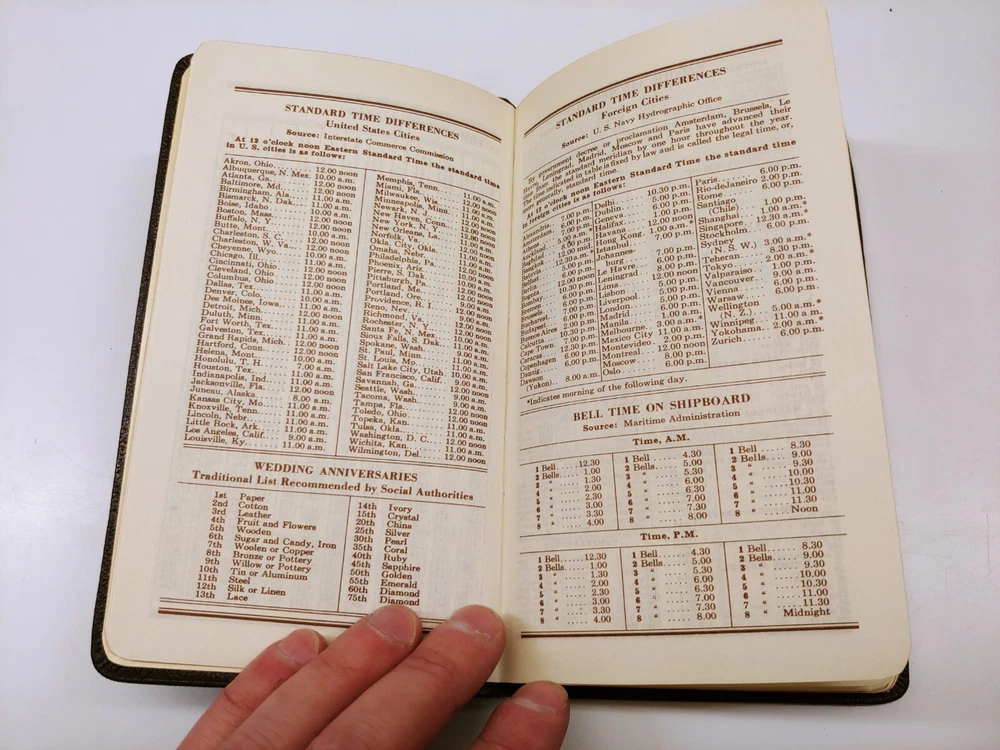 STANDARD TIME DIFFERENCES
United States Cities
Source: Interstate Commerce Commission
At 12 o'clock noon Eastern Standard Time the standard time
in U. S. cities is as follows:
Akron, Ohio 12.00 noon
Albuquerque, N. Mex. 10.00 a.m.
Atlanta, Ga. 12.00 noon
Baltimore, Md. 12.00 noon
Birmingham, Ala. 11.00 a.m.
Bismarck, N. Dak. 11.00 a.m.
Boise, Idaho 10.00 a.m.
Boston, Mass. 12.00 noon
Buffalo, N. Y. 12.00 noon
Butte, Mont. 10.00 a.m.
Charleston, S. C. 12.00 noon
Charleston, W. Va. 12.00 noon
Cheyenne, Wyo. 10.00 a.m.
Chicago, Ill. 11.00 a.m.
Cincinnati, Ohio 12.00 noon
Cleveland, Ohio 12.00 noon
Columbus, Ohio 12.00 noon
Dallas, Tex. 11.00 a.m.
Denver, Colo. 10.00 a.m.
Des Moines, Iowa 11.00 a.m.
Detroit, Mich. 12.00 noon
Duluth, Minn. 11.00 a.m.
Fort Worth, Tex. 11.00 a.m.
Galveston, Tex. 11.00 a.m.
Grand Rapids, Mich. 12.00 noon
Hartford, Conn. 12.00 noon
Helena, Mont. 10.00 a.m.
Honolulu, T. H. 7.00 a.m.
Houston, Tex. 11.00 a.m.
Indianapolis, Ind. 11.00 a.m.
Jacksonville, Fla. 12.00 noon
Juneau, Alaska 8.00 a.m.
Kansas City, Mo. 11.00 a.m.
Knoxville, Tenn. 11.00 a.m.
Lincoln, Nebr. 11.00 a.m.
Little Rock, Ark. 11.00 a.m.
Los Angeles, Calif. 9.00 a.m.
Louisville, Ky. 11.00 a.m.
Memphis, Tenn. 11.00 a.m.
Miami, Fla. 12.00 noon
Milwaukee, Wis. 11.00 a.m.
Minneapolis, Minn. 11.00 a.m.
Newark, N. J. 12.00 noon
New Haven, Conn. 12.00 noon
New York, N. Y. 12.00 noon
New Orleans, La. 11.00 a.m.
Norfolk, Va. 12.00 noon
Okla. City, Okla. 11.00 a.m.
Omaha, Nebr. 11.00 a.m.
Philadelphia, Pa. 12.00 noon
Phoenix, Ariz. 10.00 a.m.
Pierre, S. Dak. 11.00 a.m.
Pittsburg, Pa. 12.00 noon
Portland, Me. 12.00 noon
Portland, Ore. 9.00 a.m.
Providence, R. I. 12.00 noon
Reno, Nev. 9.00 a.m.
Richmond, Va. 12.00 noon
Rochester, N. Y. 12.00 noon
Santa Fe, N. Mex. 10.00 a.m.
Sioux Falls, S. Dak. 11.00 a.m.
Spokane, Wash. 9.00 a.m.
St. Paul, Minn. 11.00 a.m.
St. Louis, Mo. 11.00 a.m.
Salt Lake City, Utah 10.00 a.m.
San Francisco, Calif. 9.00 a.m.
Savannah, Ga. 12.00 noon
Seattle, Wash. 9.00 a.m.
Tacoma, Wash. 9.00 a.m.
Tampa, Fla. 12.00 noon
Toledo, Ohio 12.00 noon
Topeka, Kan. 11.00 a.m.
Tulsa, Okla. 11.00 a.m.
Washington, D. C. 12.00 noon
Wichita, Kan. 11.00 a.m.
Wilmington, Del. 12.00 noon
WEDDING ANNIVERSARIES
Traditional List Recommended by Social Authorities
1st Paper
2nd Cotton
3rd Leather
4th Fruit and Flowers
5th Wooden
6th Sugar and Candy, Iron
7th Woolen or Copper
8th Bronze or Pottery
9th Willow or Pottery
10th Tin or Aluminum
11th Steel
12th Silk or Linen
13th Lace
14th Ivory
15th Crystal
20th China
25th Silver
30th Pearl
35th Coral
40th Ruby
45th Sapphire
50th Golden
55th Emerald
60th Diamond
75th Diamond
STANDARD TIME DIFFERENCES
Foreign Cities
Source: U. S. Navy Hydrographic Office
By government decree or proclamation Amsterdam, Brussels, Le
Havre, Leningrad, Madrid, Moscow and Paris have advanced their
time from the standard meridian by one hour throughout the year.
The time indicated in table is fixed by law and is called the legal time, or,
less usually, standard time.
At 12 o'clock noon Eastern Standard Time the standard time
in foreign cities is as follows:
Alexandria 7.00 p.m.
Bangkok
Batavia
Berlin
Bogota
Bombay
Bremen
Brussels
Bucharest
Budapest
Buenos Aires
Calcutta
Cape Town
Caracas
Copenhagen
Danzig 6.00 p.m.
Dawson
(Yukon) 8.00 a.m.
Delhi 10.30 p.m.
Dublin
Geneva 6.00 p.m.
Halifax 1.00 p.m.
Havana 12.00 noon
Hong Kong 1.00 a.m.*
Istanbul 7.00 p.m.
Johannesburg 7.00 p.m.
Le Havre
Leningrad 8.00 p.m.
Lima 12.00 noon
Lisbon
Liverpool 5.00 p.m.
London 5.00 p.m.
Madrid
Manila 1.00 a.m.
Melbourne 3.00 a.m.*
Mexico City 11.00 a.m.
Montevideo 2.00 p.m.
Montreal 12.00 noon
Moscow 8.00 p.m.
Oslo 6.00 p.m.
Paris 6.00 p.m.
Rio-de-Janeiro 2.00 p.m.
Rome 6.00 p.m.
Santiago
(Chile) 1.00 p.m.
Shanghai 1.00 a.m.*
Singapore 12.30 a.m.*
Stockholm 6.00 p.m.
Sydney
(N. S. W.) 3.00 a.m.*
Teheran 8.30 p.m.
Tokyo 2.00 a.m.*
Valparaiso 1.00 p.m.
Vancouver 9.00 a.m.
Vienna 6.00 p.m.
Warsaw 6.00 p.m.
Wellington
(N. Z.) 5.00 a.m.*
Winnipeg 11.00 a.m.
Yokohama 2.00 a.m.*
Zurich 6.00 p.m.
*Indicates morning of the following day.
BELL TIME ON SHIPBOARD
Source: Maritime Administration
Time, A.M.
1 Bell 12.30
2 Bells 1.00
3 " 1.30
4 " 2.00
5 " 2.30
6 " 3.00
7 " 3.30
8 " 4.00
1 Bell 4.30
2 Bells 5.00
3 " 5.30
4 " 6.00
5 " 6.30
6 " 7.00
7 " 7.30
8 " 8.00
1 Bell 8.30
2 Bells 9.00
3 " 9.30
4 " 10.00
5 " 10.30
6 " 11.00
7 " 11.30
8 " Noon
Time, P.M.
1 Bell 12.30
2 Bells 1.00
3 " 1.30
4 " 2.00
5 " 2.30
6 " 3.00
7 " 3.30
8 " 4.00
1 Bell 4.30
2 Bells 5.00
3 " 5.30
4 " 6.00
5 " 6.30
6 " 7.00
7 " 7.30
8 " 8.00
1 Bell 8.30
2 Bells 9.00
3 " 9.30
4 " 10.00
5 " 10.30
6 " 11.00
7 " 11.30
8 " Midnight